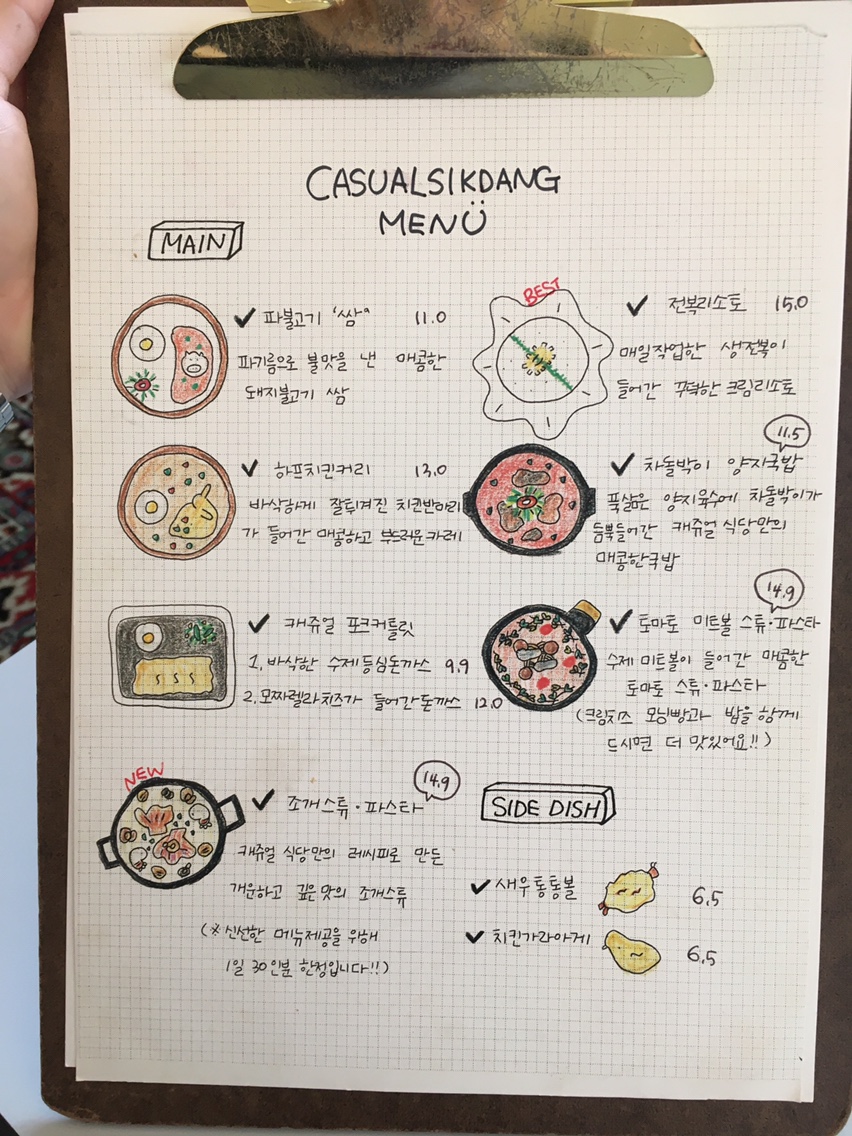 CASUALSIKDANG
MENÜ
MAIN
✔ 파불고기 '쌈" 11.0
파기름으로 불맛을 낸 매콤한
돼지불고기 쌈
✔ 하프치킨커리 13.0
바삭하게 잘튀겨진 치킨반마리
가 들어간 매콤하고 부드러운 카레
✔ 캐쥬얼 포크커틀릿
1. 바삭한 수제등심돈까스 9.9
2. 모짜렐라치즈가 들어간 돈까스 12.0
NEW
✔ 조개스튜·파스타 14.9
캐쥬얼 식당만의 레시피로 만든
개운하고 깊은맛의 조개스튜
(※신선한 메뉴제공을 위해
1일 30인분 한정입니다!!)
BEST
✔ 전복리소토 15.0
매일작업한 생전복이
들어간 꾸덕한 크림리소토
11.5
✔ 차돌박이 양지국밥
푹삶은 양지육수에 차돌박이가
듬뿍들어간 캐쥬얼 식당만의
매콤한국밥
14.9
✔ 토마토 미트볼 스튜·파스타
수제 미트볼이 들어간 매콤한
토마토 스튜·파스타
(크림치즈 모닝빵과 밥을 함께
드시면 더 맛있어요!!)
SIDE DISH
✔ 새우통통볼 6.5
✔ 치킨가라아게 6.5